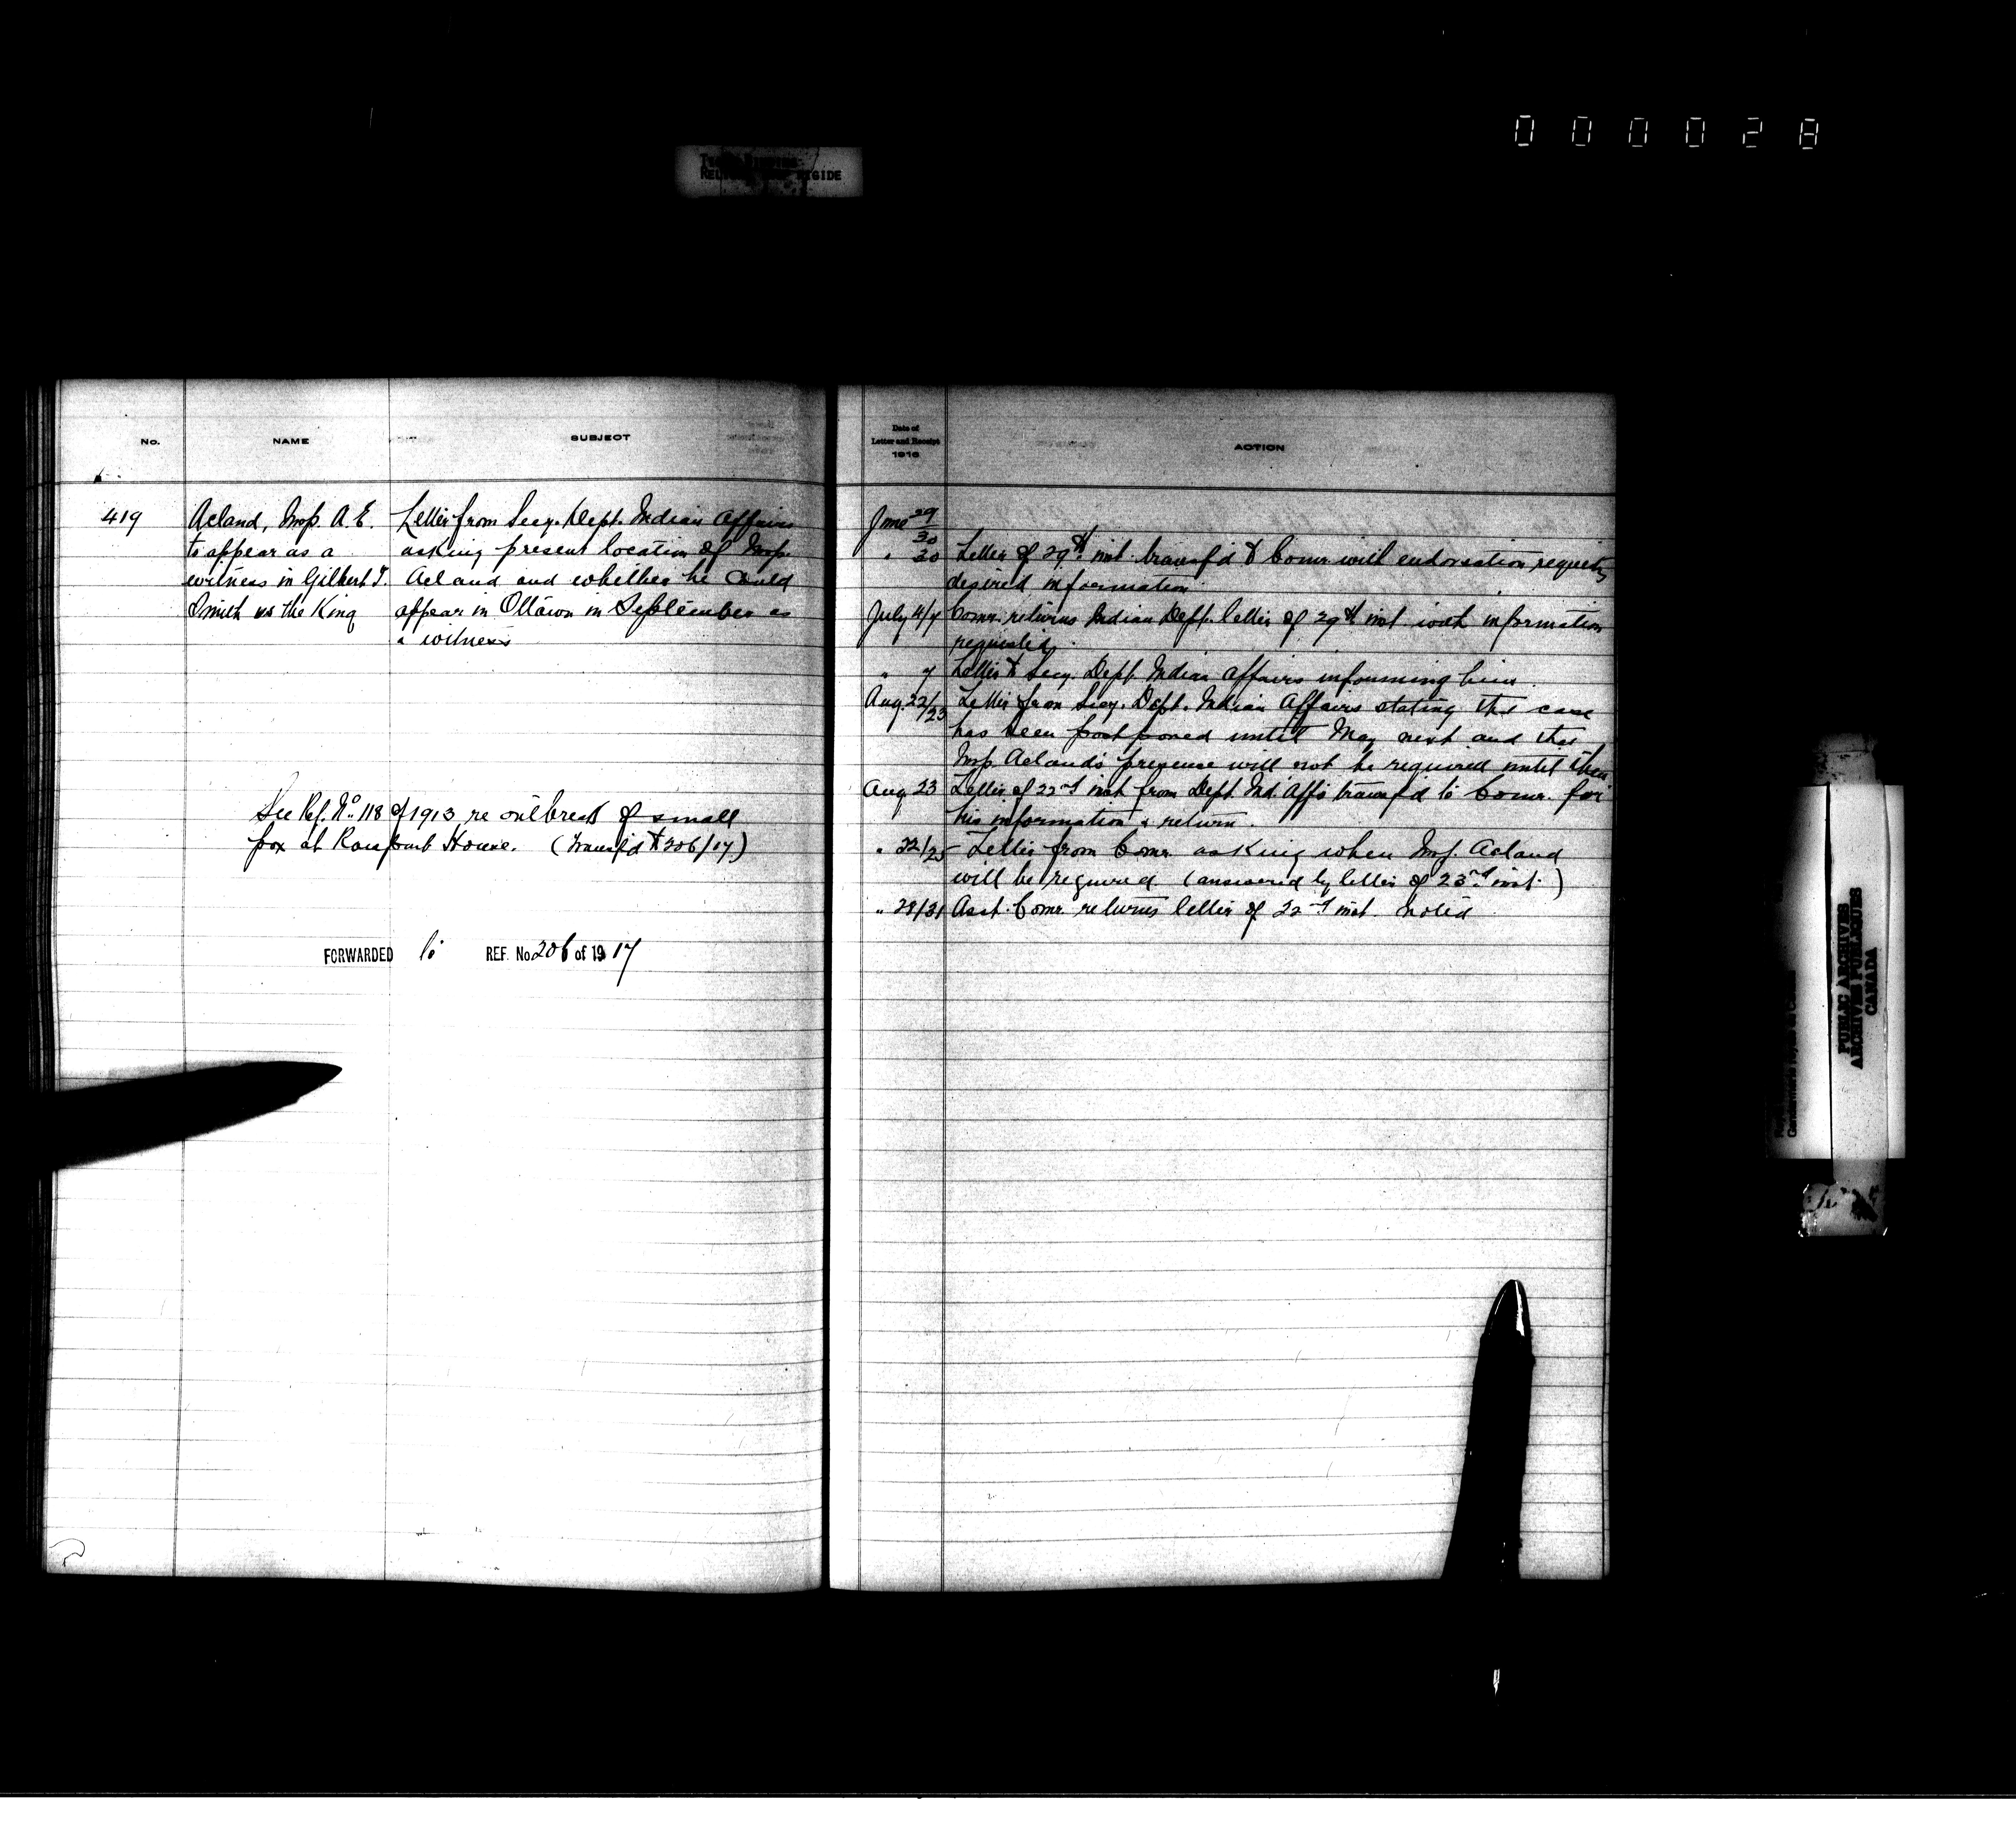 000028
No.
NAME
SUBJECT
419
Acland, Insp. A. E.
to appear as a
witness in Gilbert T.
Smith vs the King
Letter from Secy. Dept. Indian Affairs
asking present location of Insp.
Acland and whether he could
appear in Ottawa in September as
a witness
See Ref. No. 118 of 1913 re outbreak of small
pox at House. (Transf'd to 206/17)
FORWARDED to REF. No 206 of 1917
Date of
Letter and Receipt
1916
ACTION
June 29/30
" 30 Letter of 29th inst. transf'd to Comr. with endorsation requesting
desired information
July 4/7 Comr. returns Indian Dept. letter of 29th inst. with information
requested.
" 7 Letter to Secy. Dept. Indian Affairs informing him.
Aug. 22/23 Letter from Secy. Dept. Indian Affairs stating the case
has been postponed until May next and that
Insp. Acland's presence will not be required until then
Aug 23 Letter of 22nd inst. from Dept. Ind. Affs transf'd to Comr. for
his information & return.
" 22/25 Letter from Comr. asking when Insp. Acland
will be required (answered by letter of 23rd inst.)
" 28/31 Asst. Comr. returns letter of 22nd inst. noted
PUBLIC ARCHIVES
ARCHIVES PUBLIQUES
CANADA